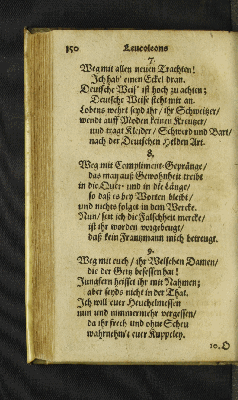 150 Leucoleons
7.
Weg mit allen neuen Trachten!
Ich hab' einen Eckel dran.
Deutsche Weis' ist hoch zu achten;
Deutsche Weise steht mir an.
Lobens wehrt seyd ihr / ihr Schweitzer/
wendt auff Moden keinen Kreutzer/
und tragt Kleider / Schwerd und Bart/
nach der Deutschen Helden Art.
8.
Weg mit Compliment-Gepränge/
das man auß Gewohnheit treibt
in die Quer- und in die Länge/
so daß es bey Worten bleibt/
und nichts folget in dem Wercke.
Nun/ seit ich die Falschheit mercke/
ist ihr worden vorgebeugt/
daß kein Frantzmann mich betreugt.
9.
Weg mit euch / ihr Welschen Damen/
die der Geitz besessen hat!
Jungfern heisset ihr mit Nahmen;
aber seyds nicht in der That.
Ich will euer Heuchelmessen
nun und nimmermehr vergessen/
da ihr frech und ohne Scheu
wahrnehm't euer Kuppeley.
10. O